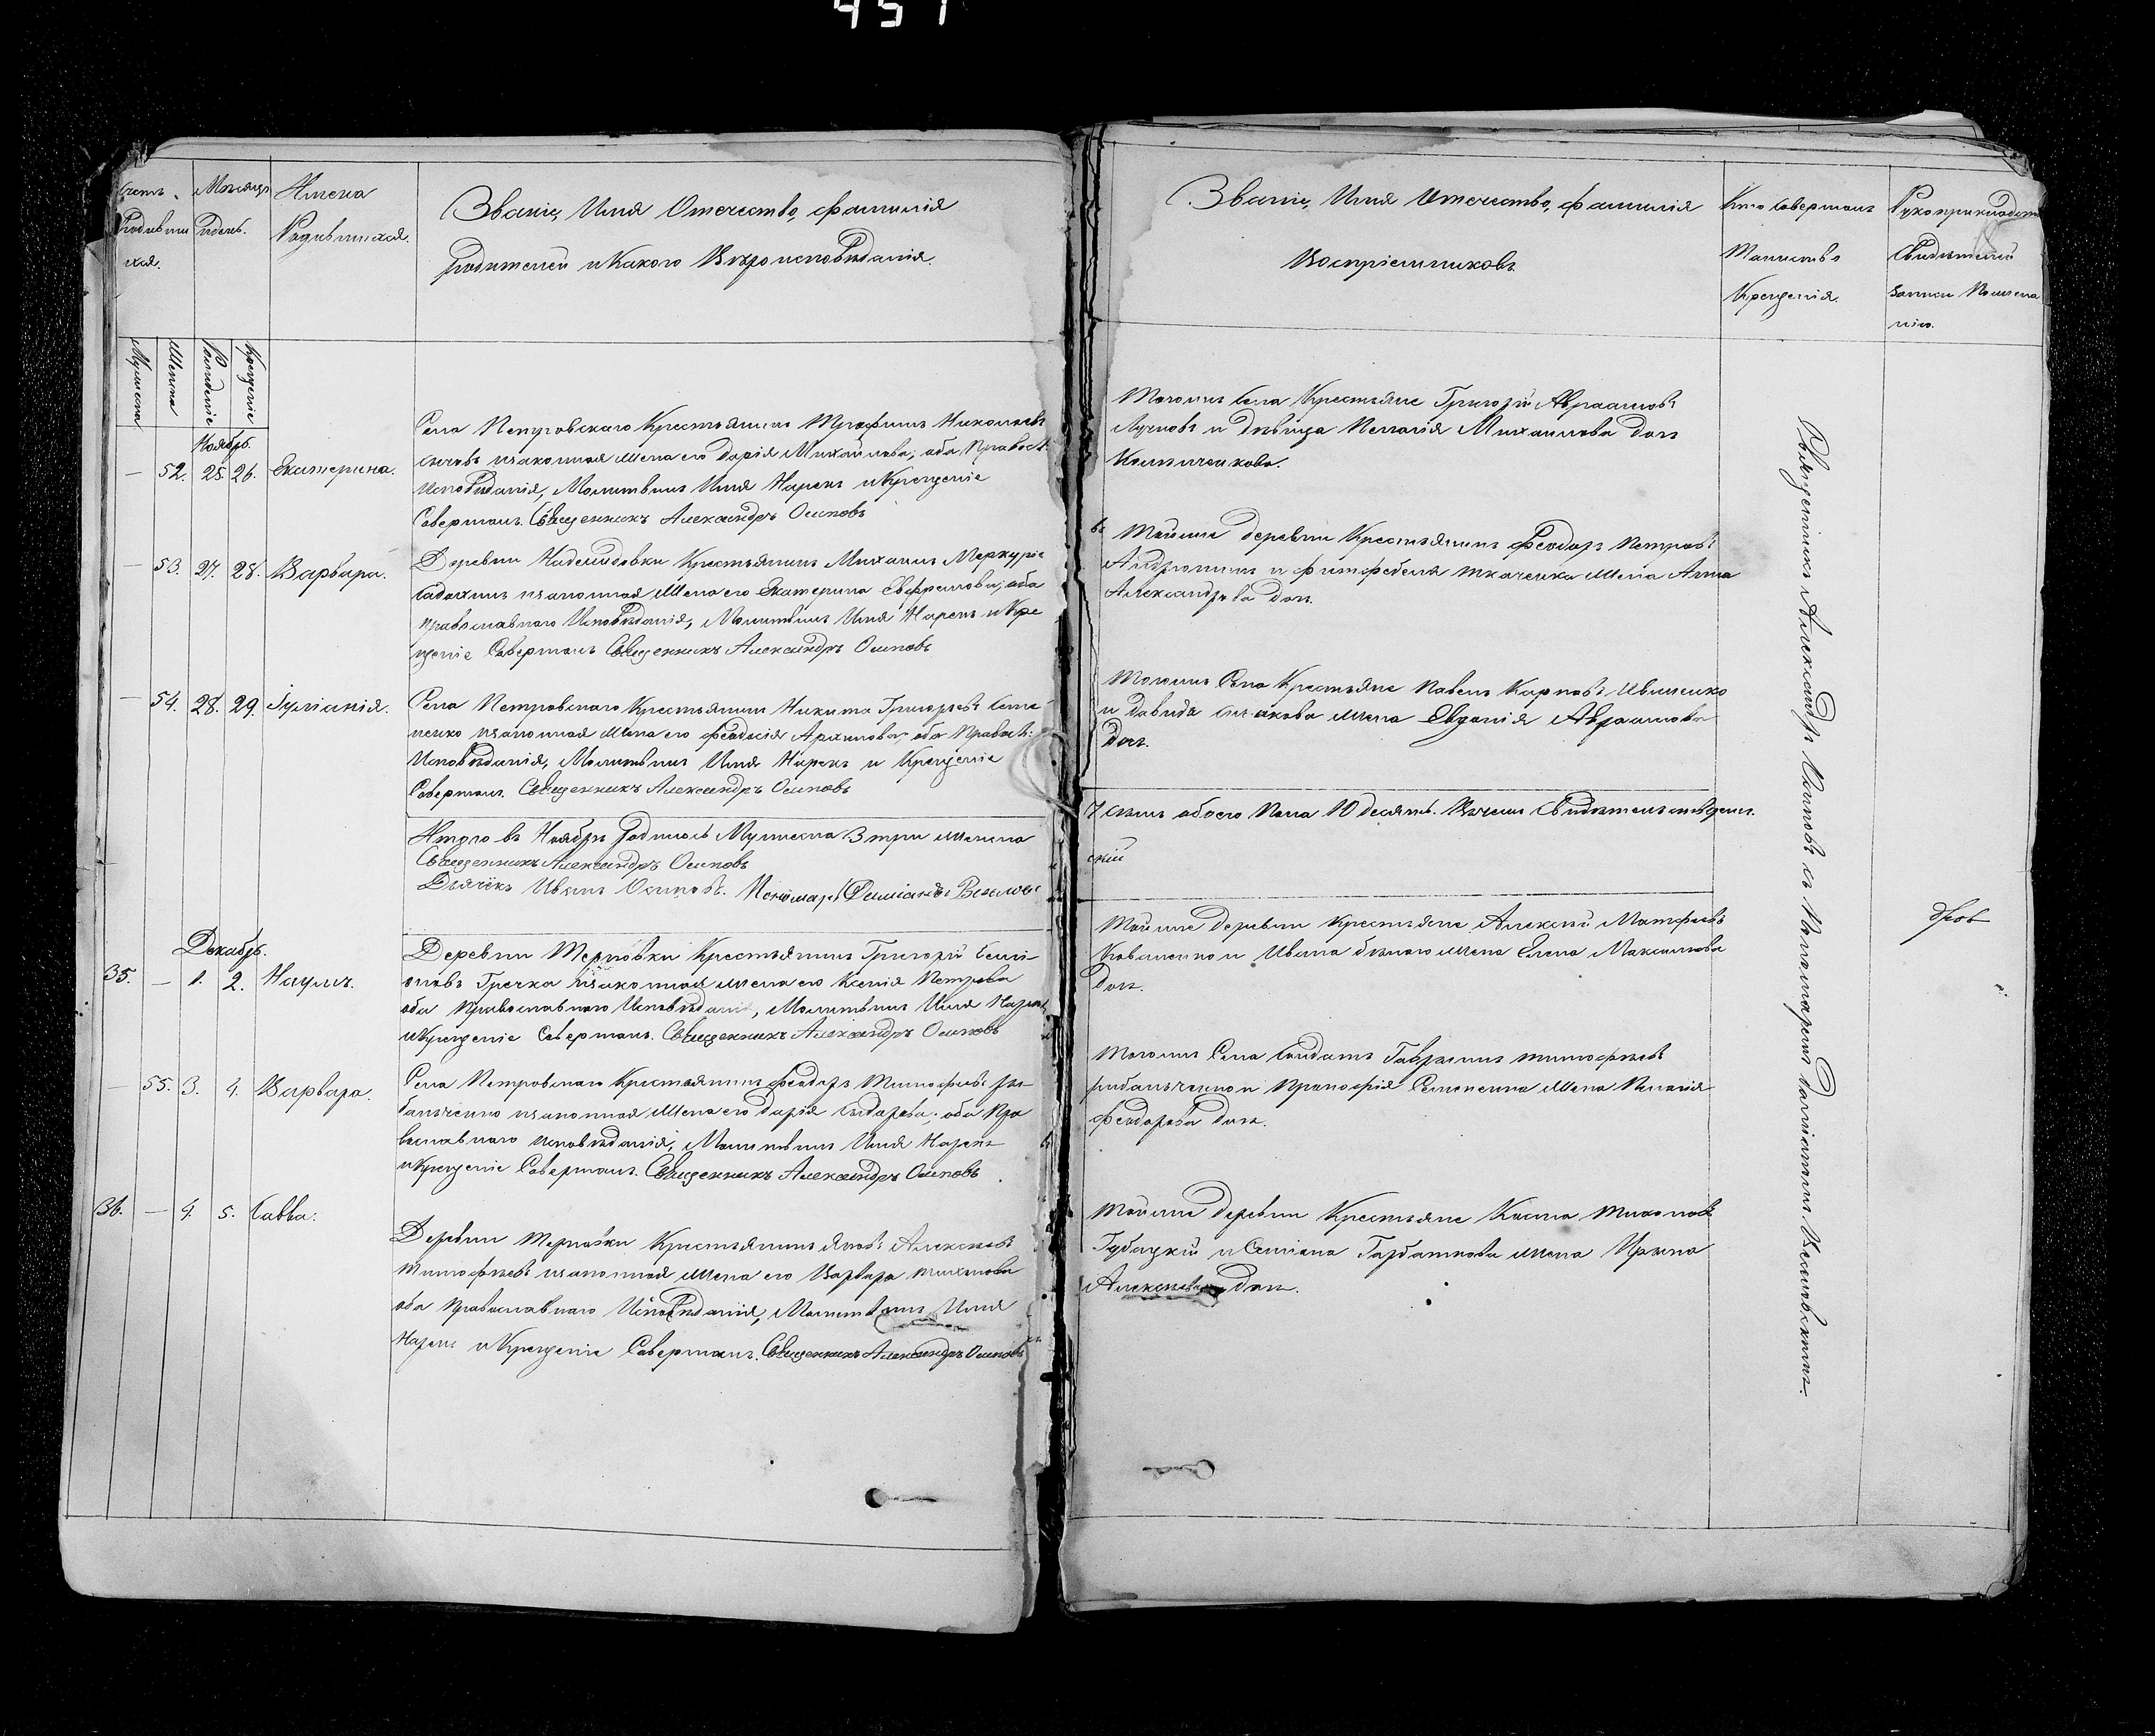 451
Счетъ
Родивши
хся.
Мѣсяцъ
и день.
Имена
Родившихся.
Званіе, Имя Отчество, фамилія
родителей и Какого Вѣроисповѣданія.
Мужеска
Женска
Рожденіе
Крещеніе
Ноябрь.
— 52. 25. 26. Екатерина.
Села Петровскаго Крестьянинъ Трофимъ Николаевъ
изаконная жена его Дарія Михаилова, оба Правосл:
Исповѣданія, Молитвилъ Имя Нарекъ и Крещеніе
Совершалъ Священникъ Александръ Осиповъ
— 53. 27. 28. Варвара.
Деревни Надеждовки Крестьянинъ Михаилъ Меркурie
изаконная Жена его Екатерина Евфремова, оба
православнаго Исповѣданія, Молитвилъ Имя Нарекъ и Кре
щеніе Совершалъ Священникъ Александръ Осиповъ
— 54. 28. 29. Іуліанія.
Села Петровскаго Крестьянинъ Никита Григорьевъ Семе
ненко изаконная Жена его Феодосія Архипова, оба Правосл:
Исповѣданія, Молитвилъ Имя Нарекъ и Крещеніе
Совершалъ Священникъ Александръ Осиповъ
Итого въ Ноябрѣ родилось Мужеска 3 три женска
Священникъ Александръ Осиповъ
Дьячёкъ Иванъ Осиповъ. Пономарь Даміанъ
Декабрь.
35. — 1. 2. Наумъ.
Деревни Терновки Крестьянинъ Григорій Семі-
оновъ Гречка изаконная жена его Ксенія Петрова
оба Православнаго Исповѣданія, Молитвилъ Имя Нарекъ
и Крещеніе Совершалъ. Священникъ Александръ Осиповъ
— 55. 3. 4. Варвара.
Села Петровскаго Крестьянинъ Феодоръ Тимофѣевъ ры-
бальченко изаконная Жена его Дарія Сидорова, оба Пра
вославнаго исповѣданія, Молитвилъ Имя Нарекъ
и Крещеніе Совершалъ. Священникъ Александръ Осиповъ
36. — 4. 5. Савва.
Деревни Терновки Крестьянинъ Яковъ Алексѣевъ
Тимофѣевъ изаконная жена его Варвара Тихонова
оба Православнаго Исповѣданія, Молитвилъ Имя
Нарекъ и Крещеніе Совершалъ. Священникъ Александръ Осиповъ
Званіе, Имя Отчество, фамилія
Воспріемниковъ
Кто Совершалъ
Таинство
Крещенія.
Рукоприкладство
Свидѣтелей
записи По желa
нію.
Тогожъ Села Крестьяне Григорій Авраамовъ
и дѣвица Пелагія Михаилова дочь
Тойже деревни Крестьянинъ Феодоръ Петровъ
и Ткаченка жена Анна
Александрова дочь.
Тогожъ Села Крестьяне Павелъ Карповъ Ивженко
и Давида жена Евдокія Авраамова
дочь.
7 семь обоего Пола 10 десять.
скій
Тойже деревни Крестьяне Алексѣй Матфѣевъ
Коваленко и Ивана бѣлаго жена Елена Максимова
дочь.
Тогожъ Села Солдатъ Гавріилъ Тимофѣевъ
рибальченко и Прокофія Семененка Жена Пелагія
Феодорова дочь.
Тойже деревни Крестьяне Косма Тихоновъ
Губацкій и Семіона Горбаткова жена Ирына
Алексѣева дочь.
Священникъ Александръ Осиповъ съ Пономаремъ Даміаномъ